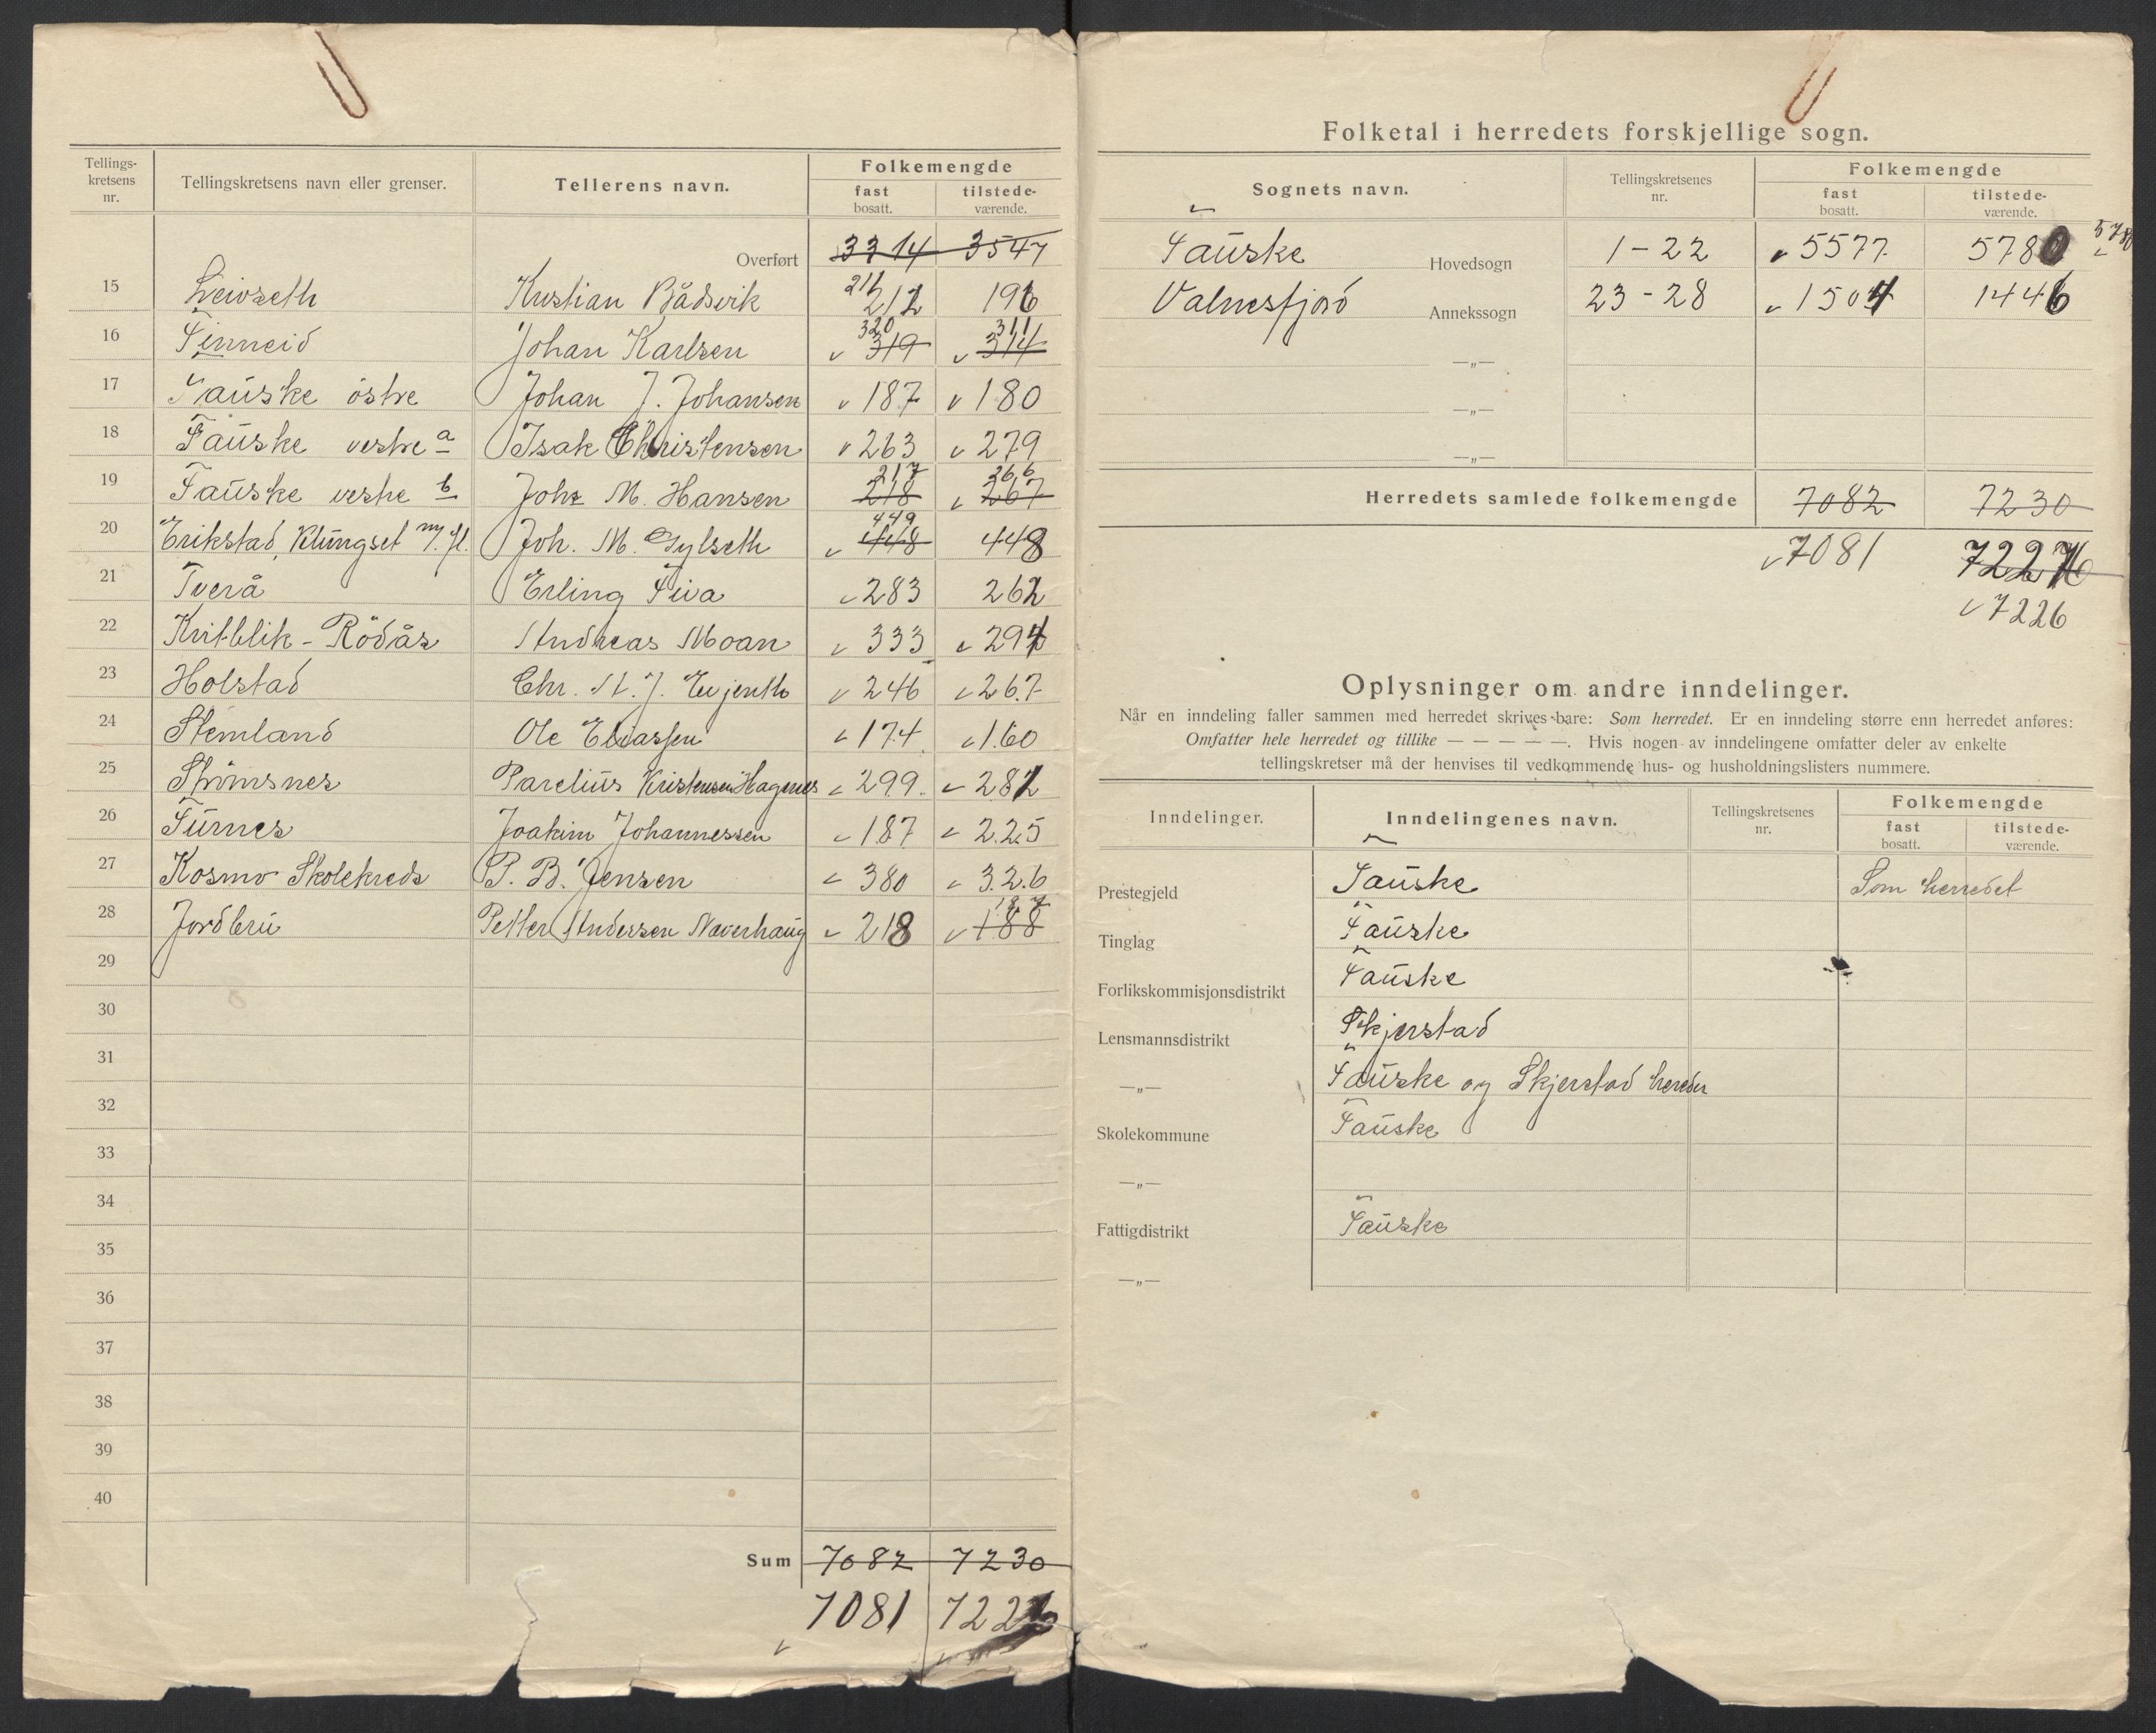 Tellings-kretsens nr. Tellingskretsens navn eller grenser. Tellerens navn. Folkemengde
fast bosatt. tilstede-værende.
Overført 3314 3547
15 Leivseth Kristian Bådsvik 212 211 196
16 Finneid Johan Karlsen 319 320 314 311
17 Fauske östre Johan J. Johansen 187 180
18 Fauske vestre a Isak Christensen 263 279
19 Fauske vestre b Joh. M. Hansen 218 217 267 266
20 Erikstad, Klungset m. fl. Joh. M. Gylseth 448 449 448
21 Tverå Erling Siva 283 262
22 Kvitblik - Rödås Andreas Moan 333 294
23 Holstad Chr. A. J. 246 267
24 Stemland Ole Eliassen 174 160
25 Strömsnes Parelius Kristensen Hagenes 299 282
26 Furnes Joakim Johannessen 187 225
27 Kosmo Skolekreds P. B. Jensen 380 326
28 Jordbru Petter Andersen Naverhaug 218 188 187
29
30
31
32
33
34
35
36
37
38
39
40
Sum 7082 7230
7081 7226
Folketal i herredets forskjellige sogn.
Sognets navn. Tellingskretsenes nr. Folkemengde
fast bosatt. tilstede-værende.
Fauske Hovedsogn 1-22 5577 5780 5780
Valnesfjord Annekssogn 23-28 1504 1446
—„—
—„—
—„—
Herredets samlede folkemengde 7082 7230
7081 7226
7226
Oplysninger om andre inndelinger.
Når en inndeling faller sammen med herredet skrives bare: Som herredet. Er en inndeling større enn herredet anføres:
Omfatter hele herredet og tillike — — — — —. Hvis nogen av inndelingene omfatter deler av enkelte
tellingskretser må der henvises til vedkommende hus- og husholdningslisters nummere.
Inndelinger. Inndelingenes navn. Tellingskretsenes nr. Folkemengde
fast bosatt. tilstede-værende.
Prestegjeld Fauske Som herredet
Tinglag Fauske
Forlikskommisjonsdistrikt Fauske
Lensmannsdistrikt Skjerstad
—„— Fauske og Skjerstad herreder
Skolekommune Fauske
—„—
Fattigdistrikt Fauske
—„—